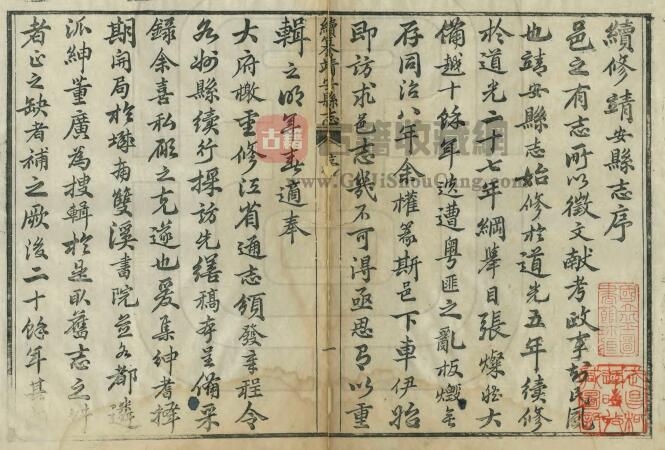 續修靖安縣志序
邑之有志所以徵文獻考政事
也靖安縣志始修於道光五年續修
於道光二十七年綱舉目張燦然大
備越十餘年迭遭粵匪之亂板燬無
存同治八年余權篆斯邑下車伊始
即訪求邑志幾不可得亟思有以重
續纂靖安縣志
序
一
輯之明年春適奉
大府檄重修江省通志頒發章程令
各州縣續行採訪先繕稿本呈備采
錄余喜私願之克遂也爰集紳耆擇
期開局於城南雙溪書院並各都遴
派紳董廣為搜輯於是取舊志之
者正之缺者補之厥後二十餘年其
古籍
古籍收藏网
www.GuJiShouCang.com